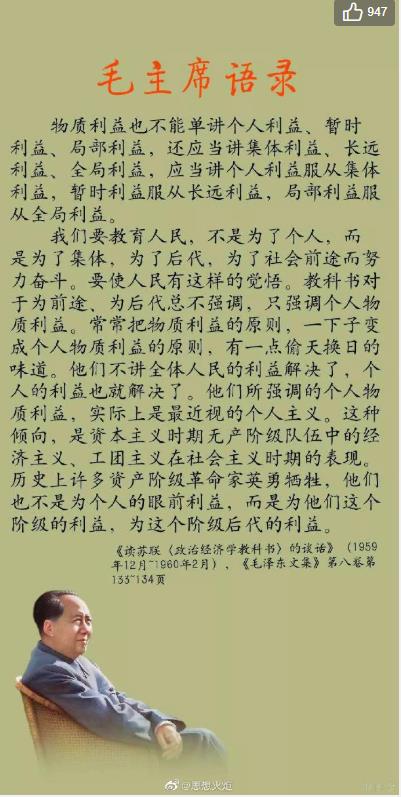 947
毛主席语录
物质利益也不能单讲个人利益、暂时
利益、局部利益，还应当讲集体利益、长远
利益、全局利益，应当讲个人利益服从集体
利益，暂时利益服从长远利益，局部利益服
从全局利益。
我们要教育人民，不是为了个人，而
是为了集体，为了后代，为了社会前途而努
力奋斗。要使人民有这样的觉悟。教科书对
于为前途、为后代总不强调，只强调个人物
质利益。常常把物质利益的原则，一下子变
成个人物质利益的原则，有一点偷天换日的
味道。他们不讲全体人民的利益解决了，个
人的利益也就解决了。他们所强调的个人物
质利益，实际上是最近视的个人主义。这种
倾向，是资本主义时期无产阶级队伍中的经
济主义、工团主义在社会主义时期的表现。
历史上许多资产阶级革命家英勇牺牲，他们
也不是为个人的眼前利益，而是为他们这个
阶级的利益，为这个阶级后代的利益。
《读苏联〈政治经济学教科书〉的谈话》（1959
年12月~1960年2月），《毛泽东文集》第八卷第
133~134页
@思想火炬